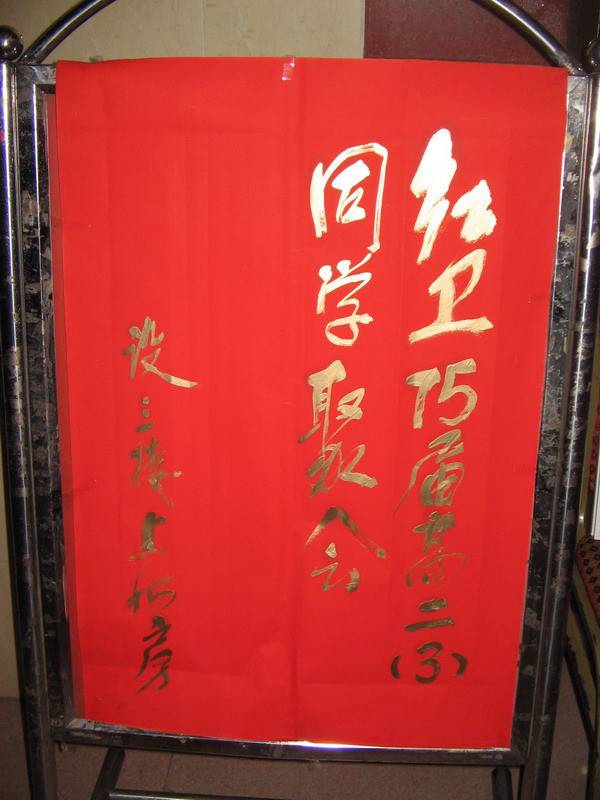 红卫75届高二(3)
同学聚会
设三楼上海房